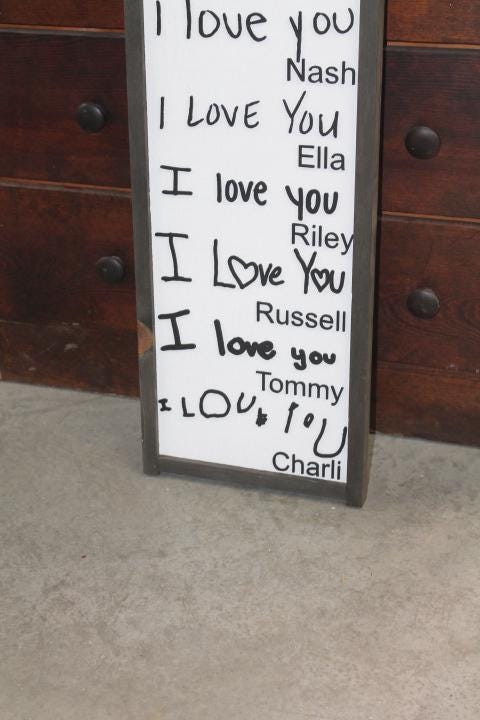 I love you
Nash
I LOVE You
Ella
I love you
Riley
I Love You
Russell
I love you
Tommy
I LOVE YOU
Charli